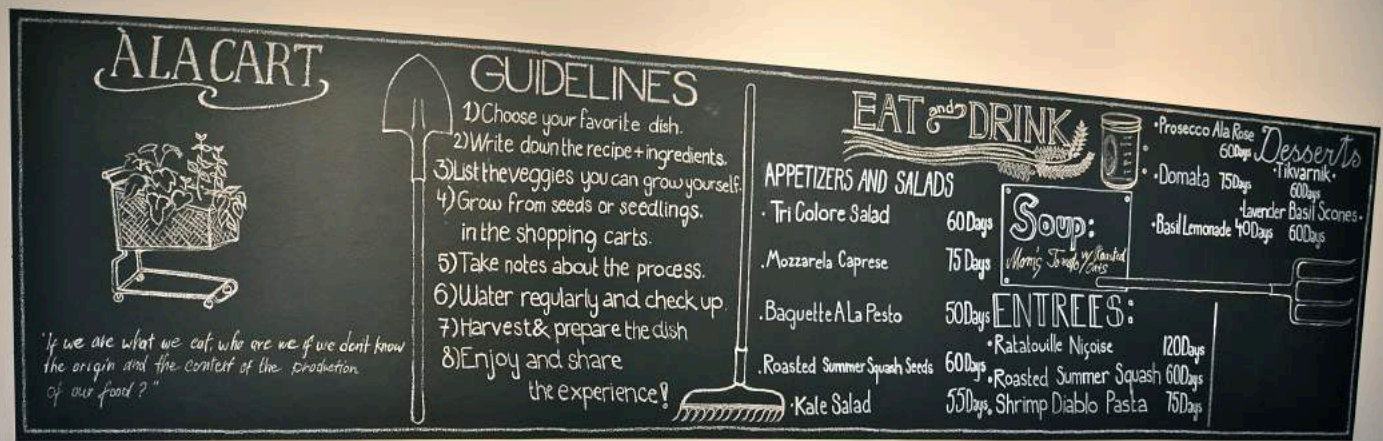 À LA CART
"If we are what we eat, who are we if we don't know
the origin and the context of the production
of our food?"
GUIDELINES
1) Choose your favorite dish.
2) Write down the recipe + ingredients.
3) List the veggies you can grow yourself.
4) Grow from seeds or seedlings.
in the shopping carts.
5) Take notes about the process.
6) Water regularly and check up.
7) Harvest & prepare the dish
8) Enjoy and share
the experience!
EAT and DRINK
APPETIZERS AND SALADS
· Tri Colore Salad 60 Days
. Mozzarela Caprese 75 Days
. Baguette A La Pesto 50 Days
. Roasted Summer Squash Seeds 60 Days
· Kale Salad 55 Days
Soup:
Mom's Tomato w/ Roasted
ENTREES:
· Ratatouille Niçoise 120 Days
· Roasted Summer Squash 60 Days
. Shrimp Diablo Pasta 75 Days
· Prosecco Ala Rose
60 Days
· Domata 75 Days
· Basil Lemonade 40 Days
Desserts
· Tikvarnik ·
60 Days
· Lavender Basil Scones ·
60 Days